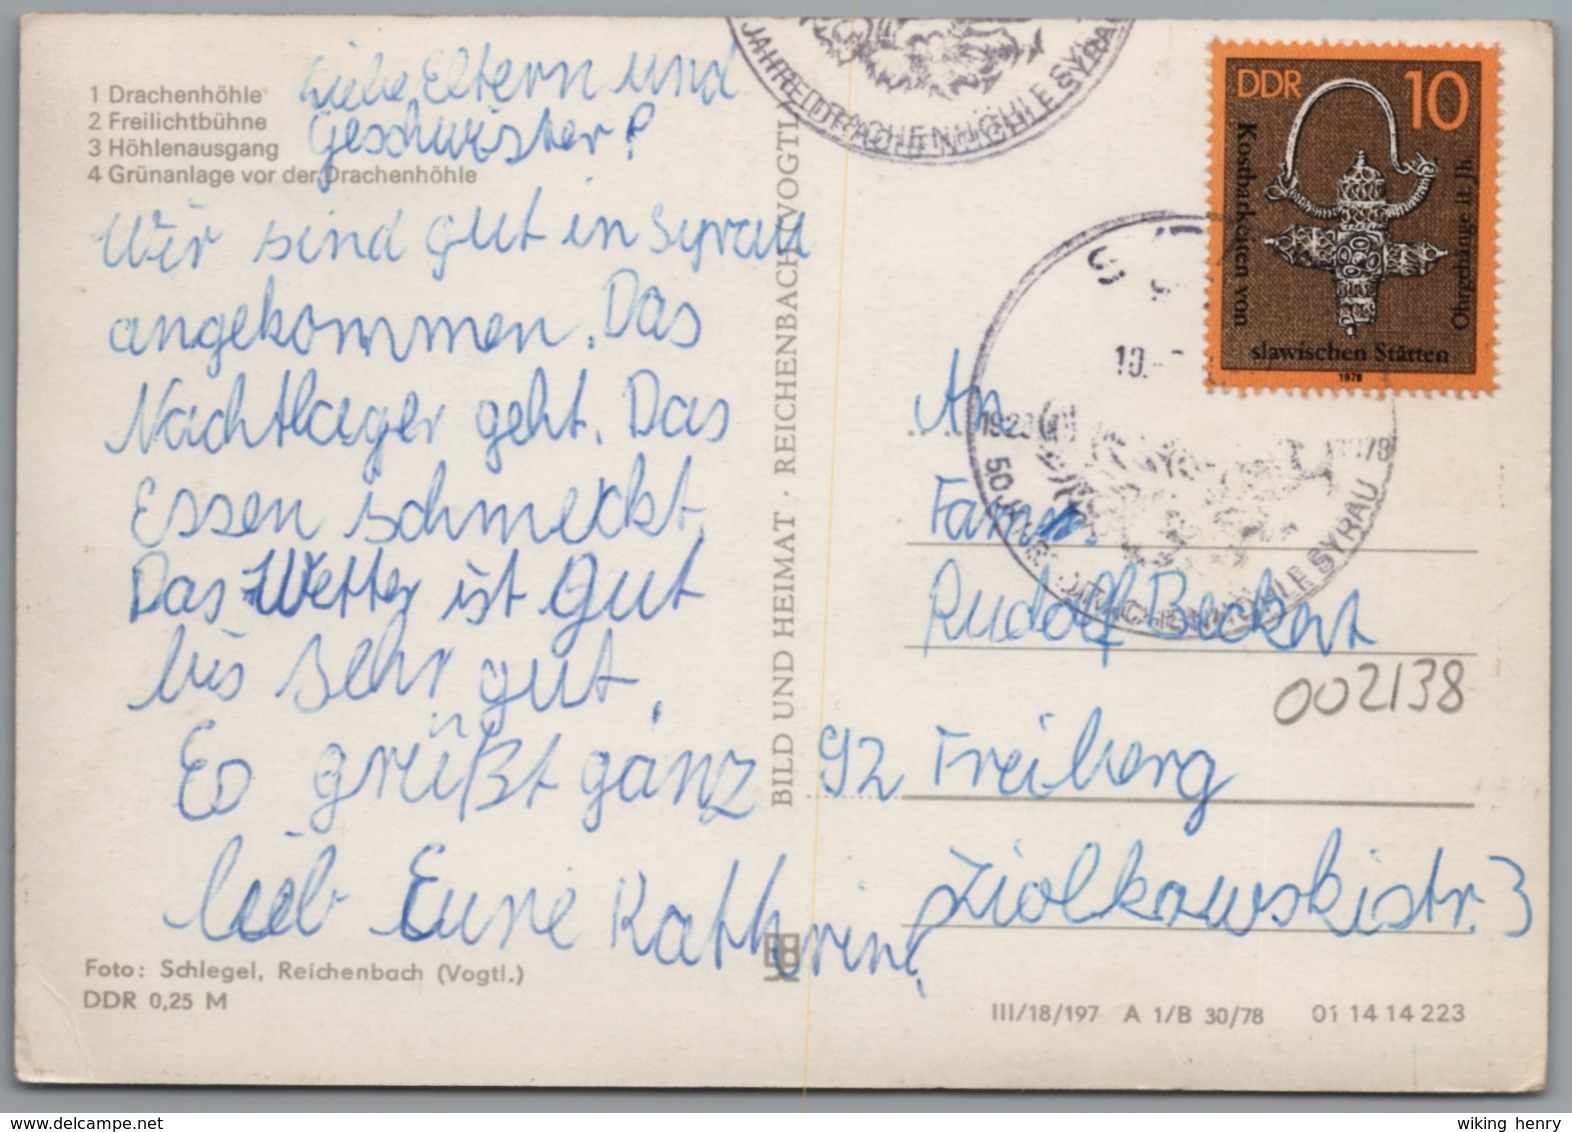 1 Drachenhöhle
2 Freilichtbühne
3 Höhlenausgang
4 Grünanlage vor der Drachenhöhle
Liebe Eltern und
Geschwister!
Wir sind gut in Syrau
angekommen. Das
Nachtlager geht. Das
Essen schmeckt.
Das Wetter ist gut
bis sehr gut.
Es grüßt ganz
lieb Eure Kathrin!
Foto: Schlegel, Reichenbach (Vogtl.)
DDR 0,25 M
BILD UND HEIMAT · REICHENBACH (VOGTL.)
JAHRE DRACHENHÖHLE SYRAU
DDR 10
Kostbarkeiten von
slawischen Stätten
Ohrgehänge 11. Jh.
1978
10.
1928 1978
50 JAHRE DRACHENHÖHLE SYRAU
An
Fam.
Rudolf Beckert
002138
92 Freiberg
Ziolkowskistr. 3
III/18/197 A 1/B 30/78 01 14 14 223
wiking henry
www.delcampe.net